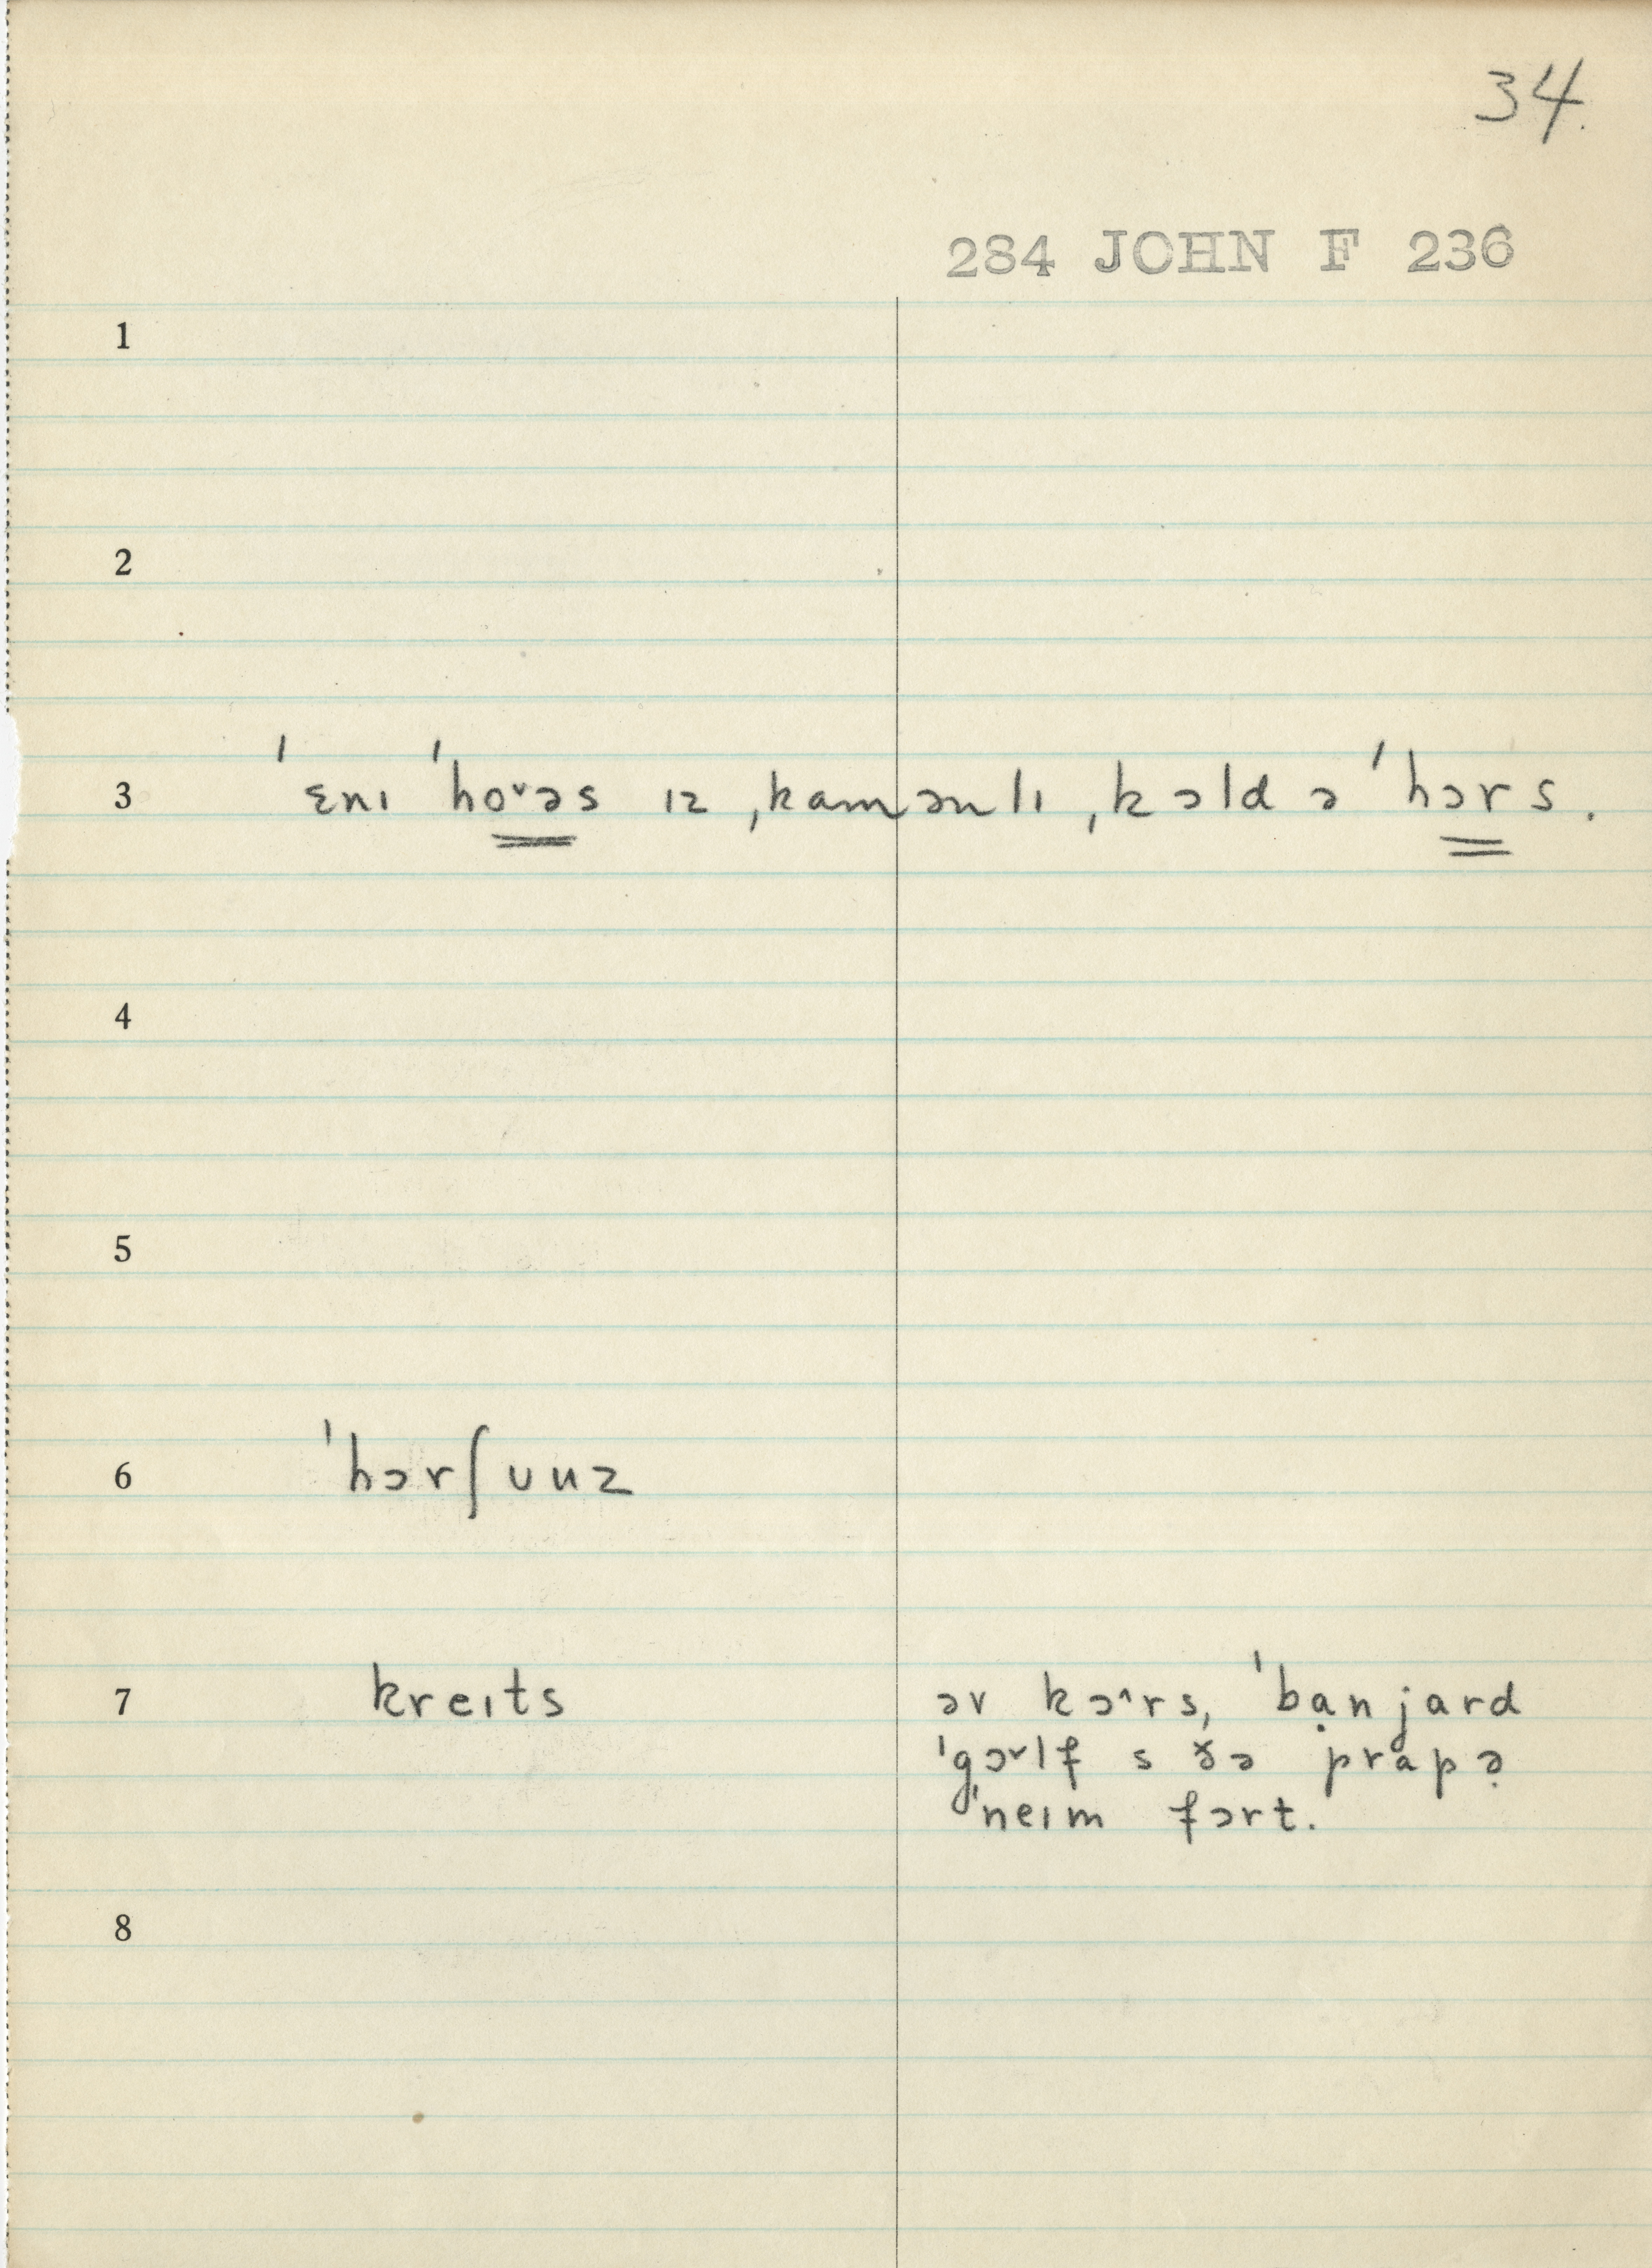 34.
284 JOHN F 236
1
2
3 ˈɛnɪ ˈho˅əs ɪz ˌkamənlɪ ˌkɔld ə ˈhɔrs.
4
5
6 ˈhɔrʃuuz
7 kreɪts əv kɔ˄rs, ˈbạnjard
ˈgɔ˅lf s ðə prapə̣
ˈneɪm fɔrt.
8